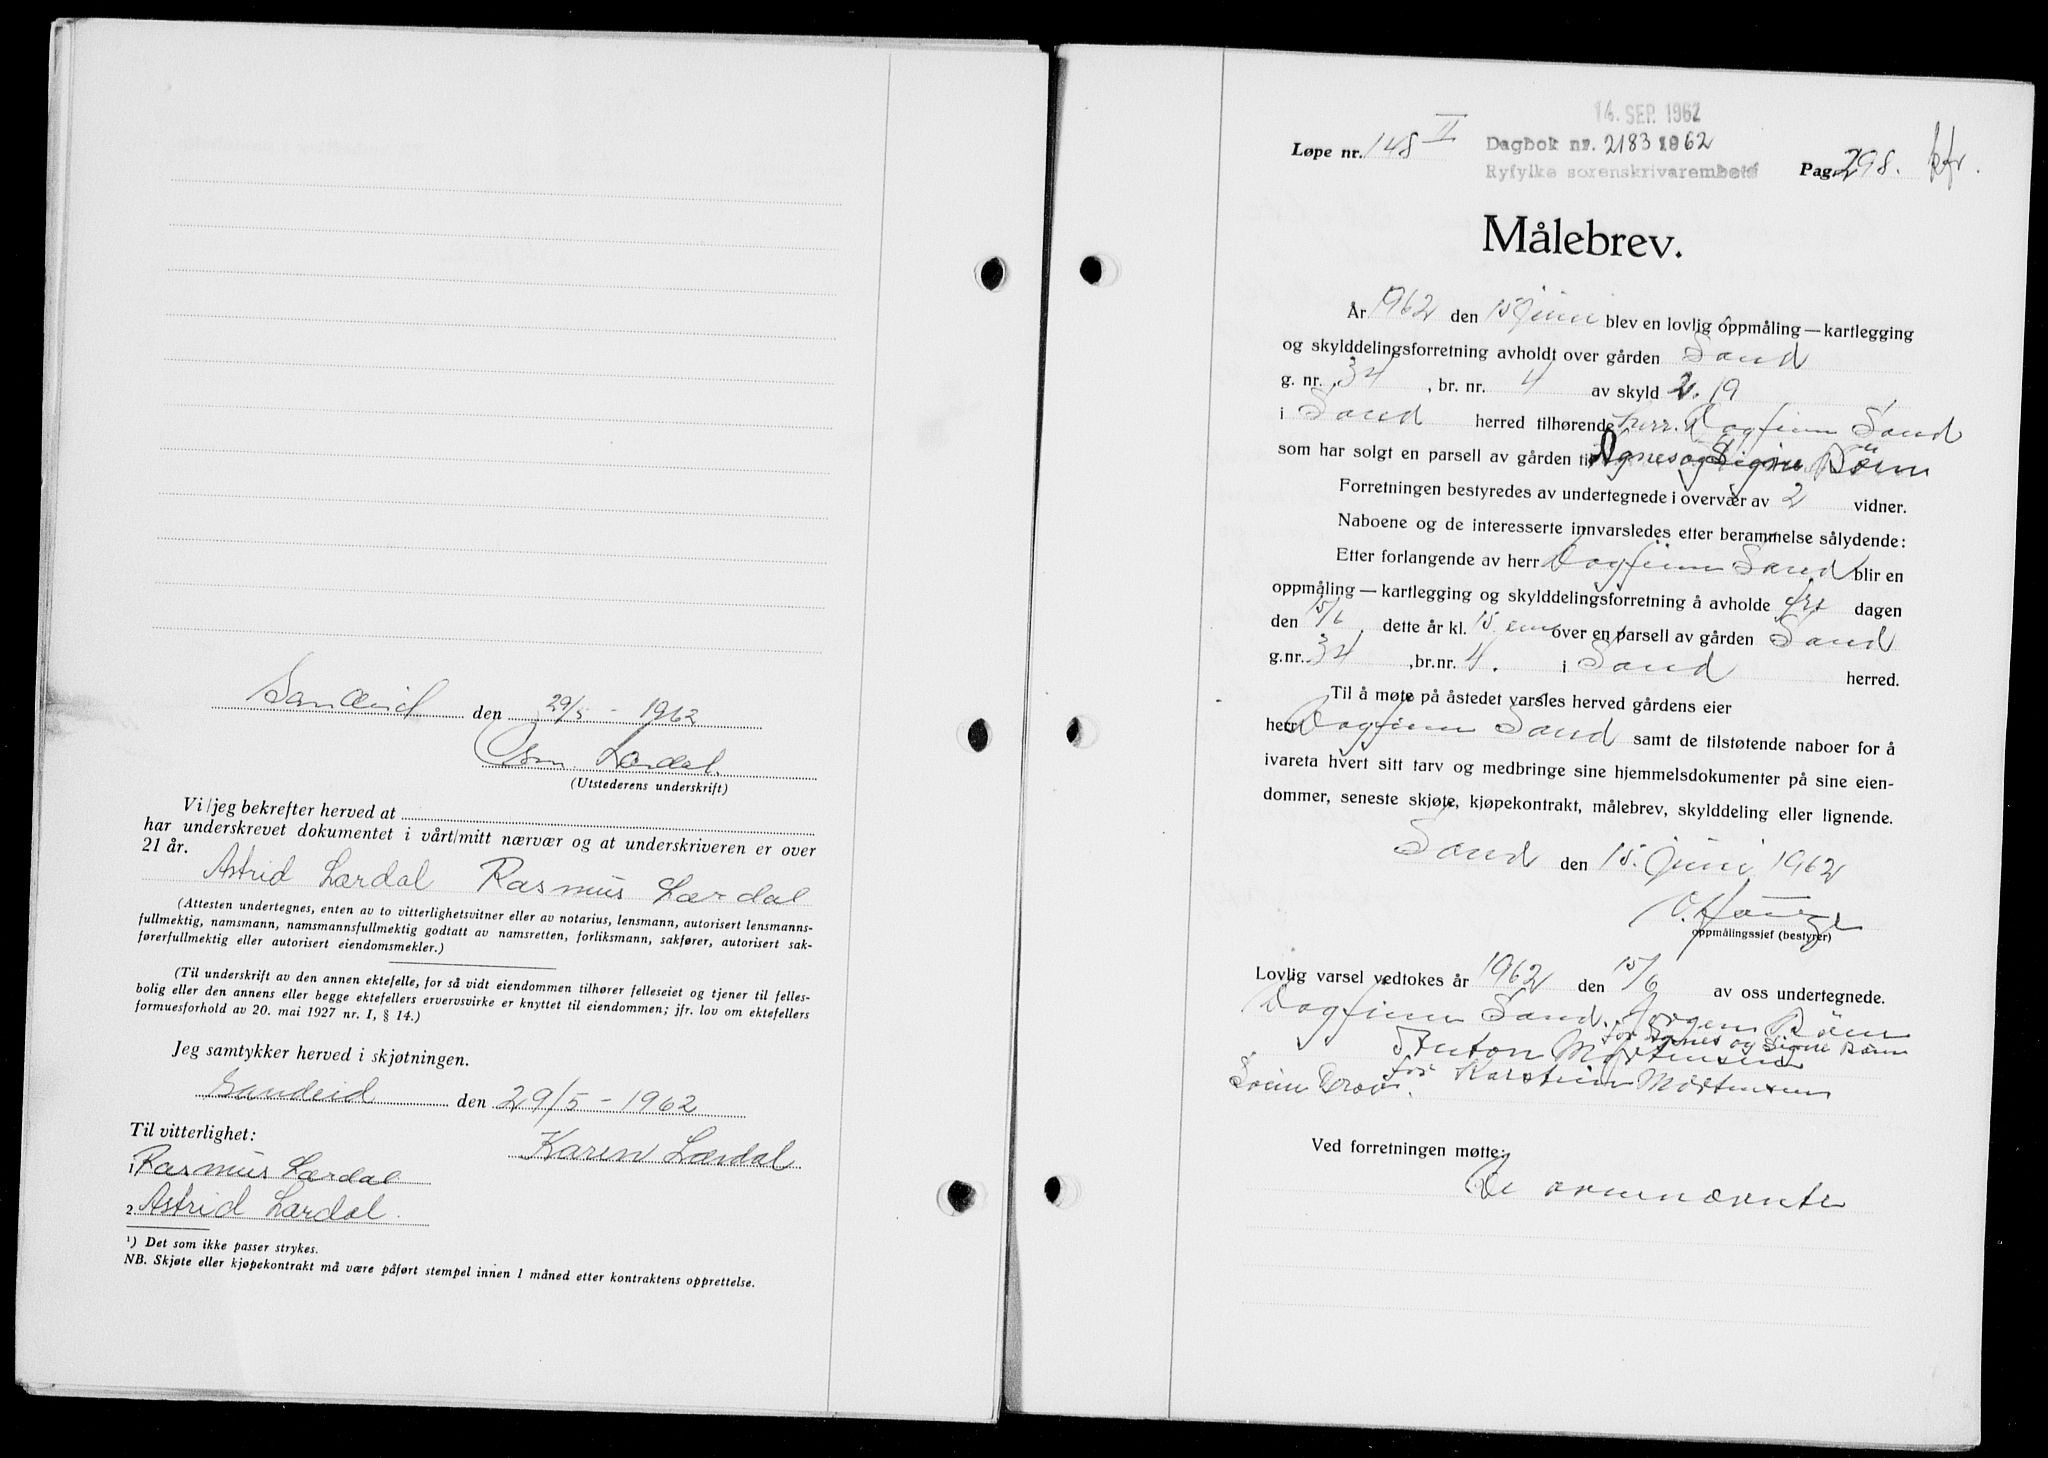 Sandeid den 29/5 - 1962
Osm. Lærdal.
(Utstederens underskrift)
Vi/jeg bekrefter herved at
har underskrevet dokumentet i vårt/mitt nærvær og at underskriveren er over
21 år.
Astrid Lærdal Rasmus Lærdal
(Attesten undertegnes, enten av to vitterlighetsvitner eller av notarius, lensmann, autorisert lensmanns-
fullmektig, namsmann, namsmannsfullmektig godtatt av namsretten, forliksmann, sakfører, autorisert sak-
førerfullmektig eller autorisert eiendomsmekler.)
(Til underskrift av den annen ektefelle, for så vidt eiendommen tilhører felleseiet og tjener til felles-
bolig eller den annens eller begge ektefellers ervervsvirke er knyttet til eiendommen; jfr. lov om ektefellers
formuesforhold av 20. mai 1927 nr. 1, § 14.)
Jeg samtykker herved i skjøtningen.
Sandeid den 29/5 - 1962
Karen Lærdal
Til vitterlighet:
1 Rasmus Lærdal
2 Astrid Lærdal.
¹) Det som ikke passer strykes.
NB. Skjøte eller kjøpekontrakt må være påført stempel innen 1 måned etter kontraktens opprettelse.
14. SEP. 1962
Løpe nr. 148 II Dagbok nr. 2183 1962
Ryfylke sorenskrivarembete Pag. 298. kfr.
Målebrev.
År 1962 den 15 juni blev en lovlig oppmåling — kartlegging
og skylddelingsforretning avholdt over gården Sand
g. nr. 34, br. nr. 4 av skyld 2.19
i Sand herred tilhørende herr. Dagfinn Sand
som har solgt en parsell av gården til Agnes og Signe Bönn
Forretningen bestyredes av undertegnede i overvær av 2 vidner.
Naboene og de interesserte innvarsledes etter berammelse sålydende:
Etter forlangende av herr Dagfinn Sand blir en
oppmåling — kartlegging og skylddelingsforretning å avholde fre dagen
den 15/6 dette år kl. 15 em over en parsell av gården Sand
g.nr. 34, br.nr. 4. i Sand herred.
Til å møte på åstedet varsles herved gårdens eier
herr Dagfinn Sand samt de tilstøtende naboer for å
ivareta hvert sitt tarv og medbringe sine hjemmelsdokumenter på sine eien-
dommer, seneste skjøte, kjøpekontrakt, målebrev, skylddeling eller lignende.
Sand den 15. juni 1962
O. Hauge
oppmålingssjef (bestyrer)
Lovlig varsel vedtokes år 1962 den 15/6 av oss undertegnede.
Dagfinn Sand. Jørgen Bönn
for Agnes og Signe Bönn
Anton Mortensen
for Karsten Mortensen
Ved forretningen møtte:
De ovennevnte